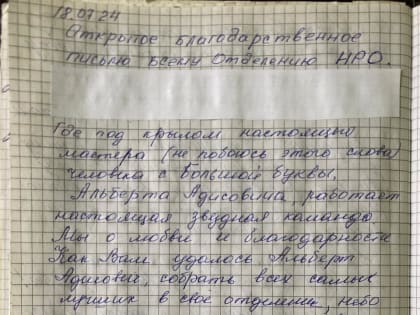 18.07.24
Открытое благодарственное
письмо всему Отделению НРО.
Где под крылом настоящего
мастера (не побоюсь этого слова)
человека с большой буквы,
Альберта Адисовича, работает
настоящая звёздная команда
Мы о любви и благодарности
Как Вам удалось Альберт
Адисович, собрать всех самых
лучших в своё отделение, небо